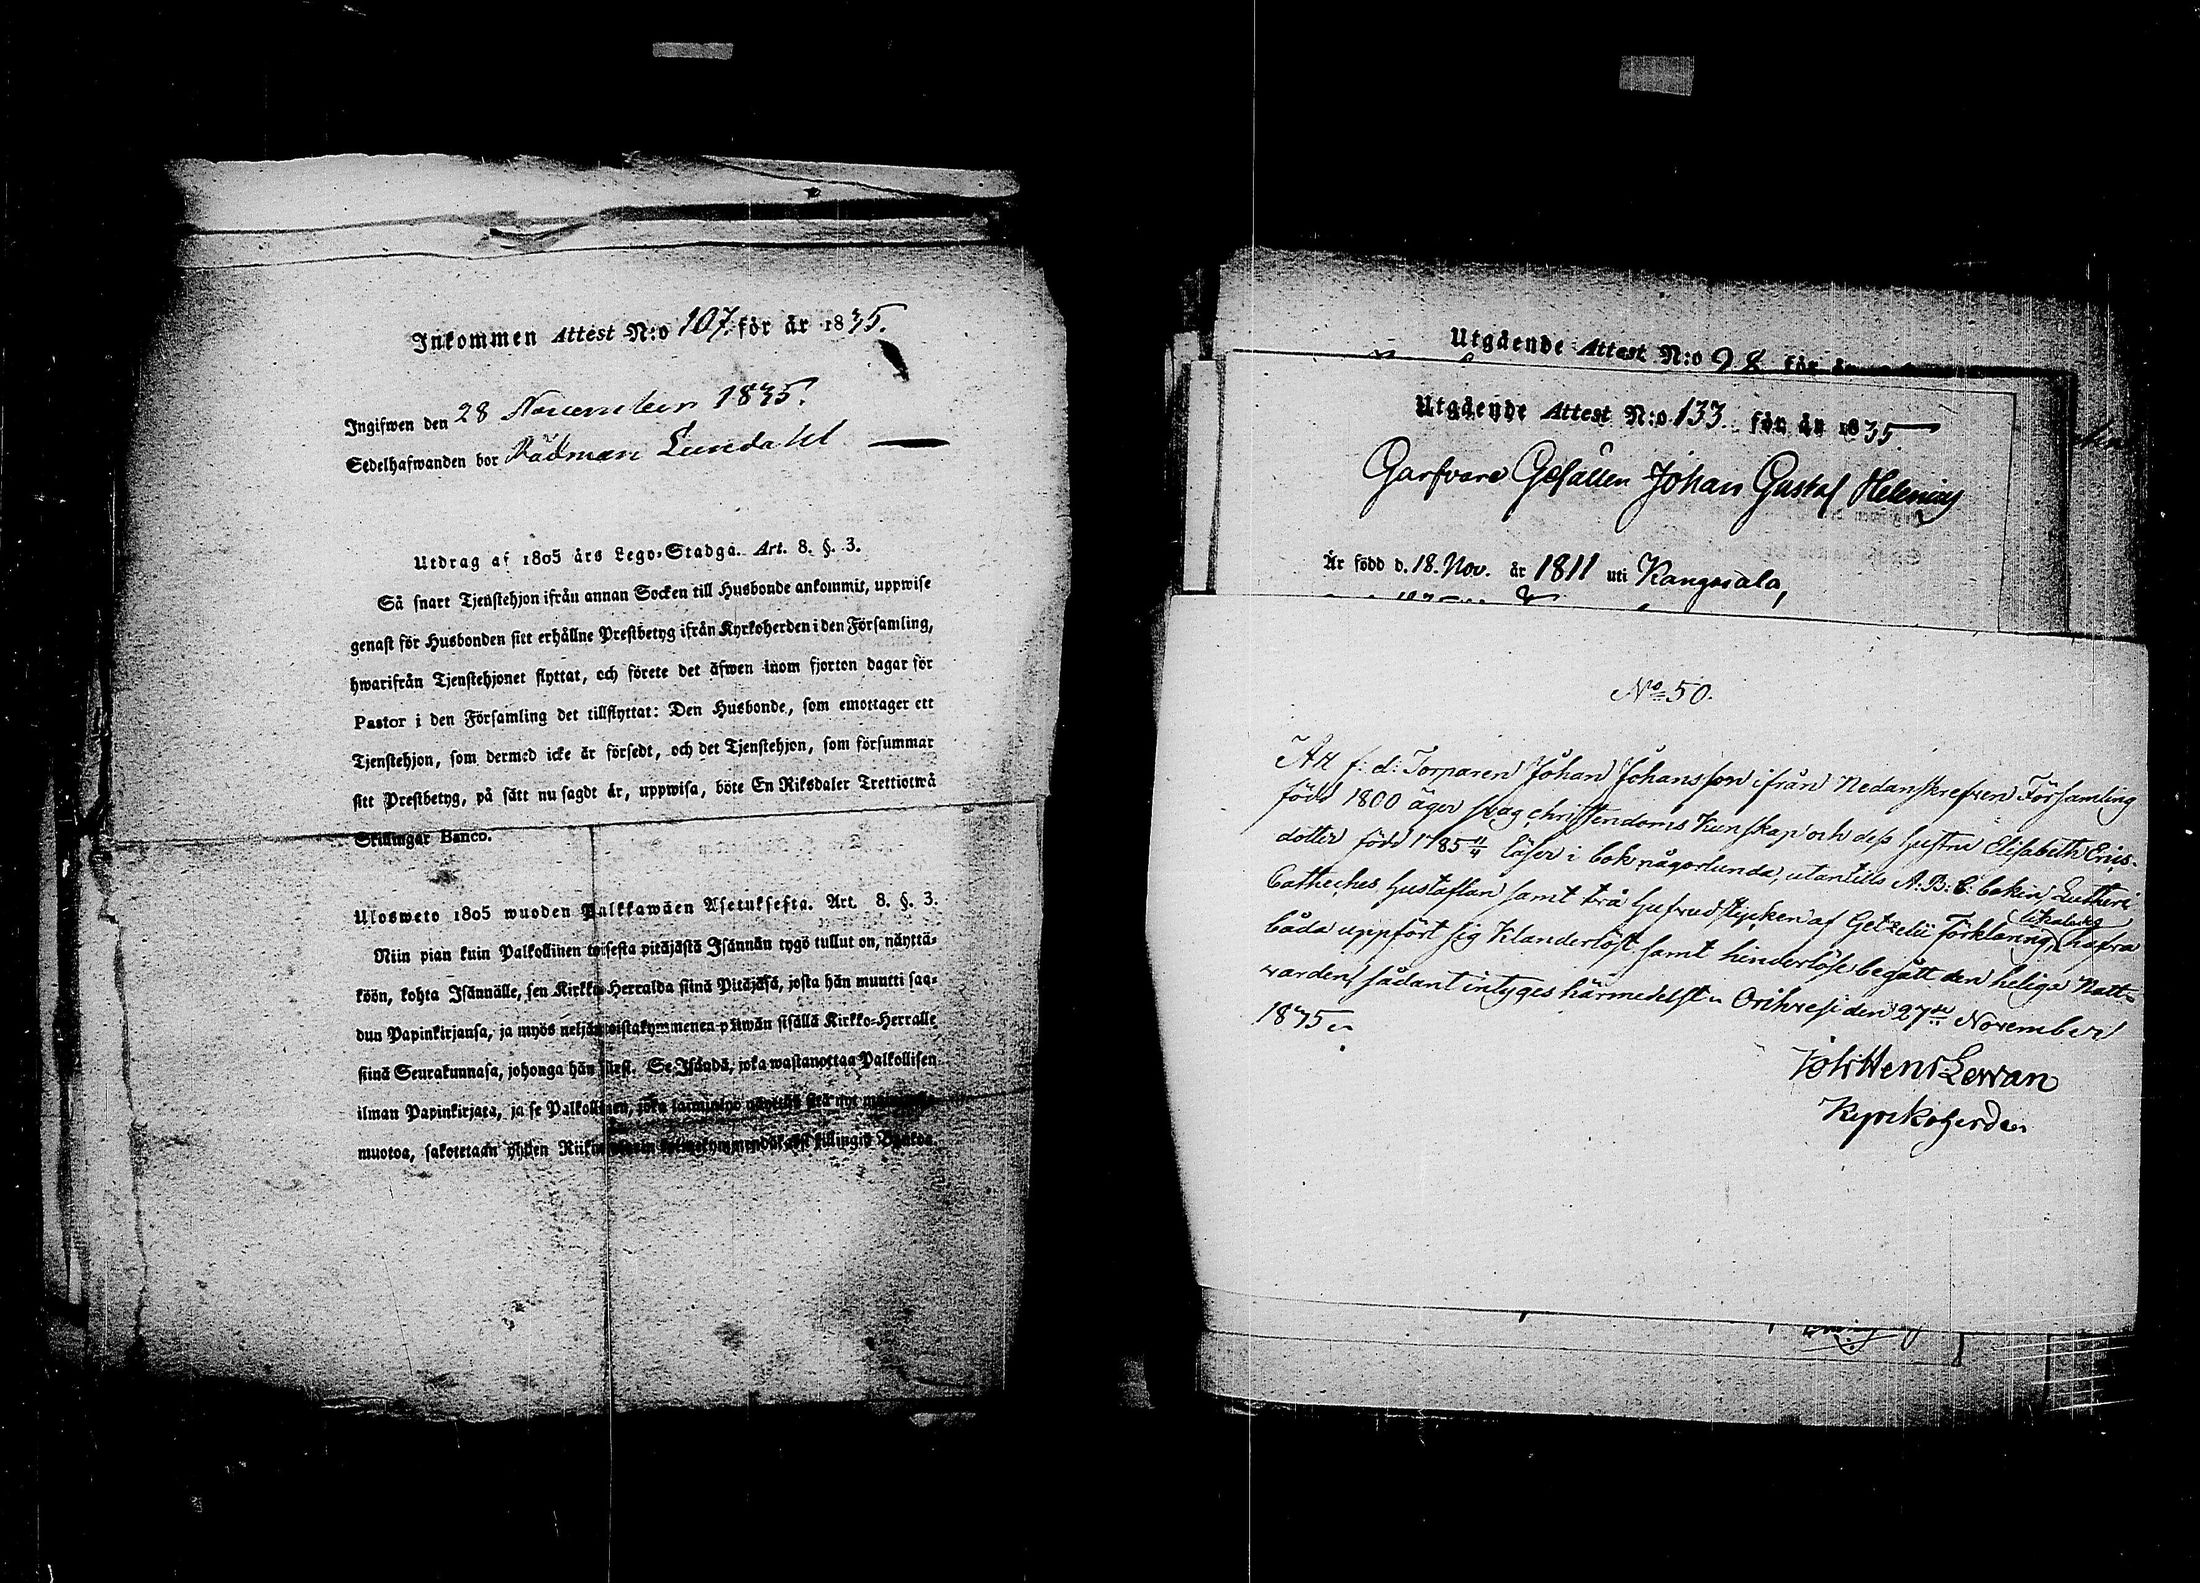 Inkommen Attest N:o 107. för år 1835.
Ingifwen den 28 November 1835.
Sedelhafwanden bor Rådman Lundahl
Utdrag af 1805 års Lego-Stadga. Art. 8. §. 3.
Så snart Tjenstehjon ifrån annan Socken till Husbonde ankommit, uppwise
genast för Husbonden sitt erhållne Prestbetyg ifrån Kyrkoherden i den Församling,
hwarifrån Tjenstehjonet flyttat, och förete det äfwen inom fjorton dagar för
Pastor i den Församling det tillflyttat: Den Husbonde, som emottager ett
Tjenstehjon, som dermed icke är försedt, och det Tjenstehjon, som försummar
sitt Prestbetyg, på sätt nu sagdt är, uppwisa, böte En Riksdaler Trettiotwå
Skillingar Banco.
Ulosweto 1805 wuoden Palkkawäen Asetuksesta. Art. 8. §. 3.
Niin pian kuin Palkollinen toisesta pitäjästä Isännän tygö tullut on, näyttä-
köön, kohta Isännälle, sen Kirkko-Herralda siinä Pitäjäsä, josta hän muutti saa-
dun Papinkirjansa, ja myös neljäntoistakymmenen päiwän sisällä Kirkko-Herralle
siinä Seurakunnasa, johonga hän siirsi. Se Isändä, joka wastanottaa Palkollisen
ilman Papinkirjata, ja se Palkollinen, joka laiminlyö näyttää sitä nyt
muotoa, sakotetaan yhden Riikin killingiä Bankoa.
Utgående Attest N:o 98 för år
Utgående Attest N:o 133. för år 1835
Garfvare Gesällen Johan Gustaf Helenius
Är född d. 18. Nov. år 1811 uti Kangasala,
No 50.
Att f: d: Torparen Johan Johansson ifrån Nedanskrefven Församling
född 1800 äger svag christendoms Kunskap och dess hustru Elisabeth Eriks-
dotter född 1785 11/4 läser i bok någorlunda, utantills A.B.C. boken, Lutheri
Catheches hustaflan samt två hufvudstycken af Getzelii Förklaring, hafva
båda uppfört sig Klanderlöst samt hinderlöse begått den heliga Natt-
varden, sådant intyges härmedelst. Orihvesi den 27de November
1835.
Joh Henr Levan
Kyrkoherden